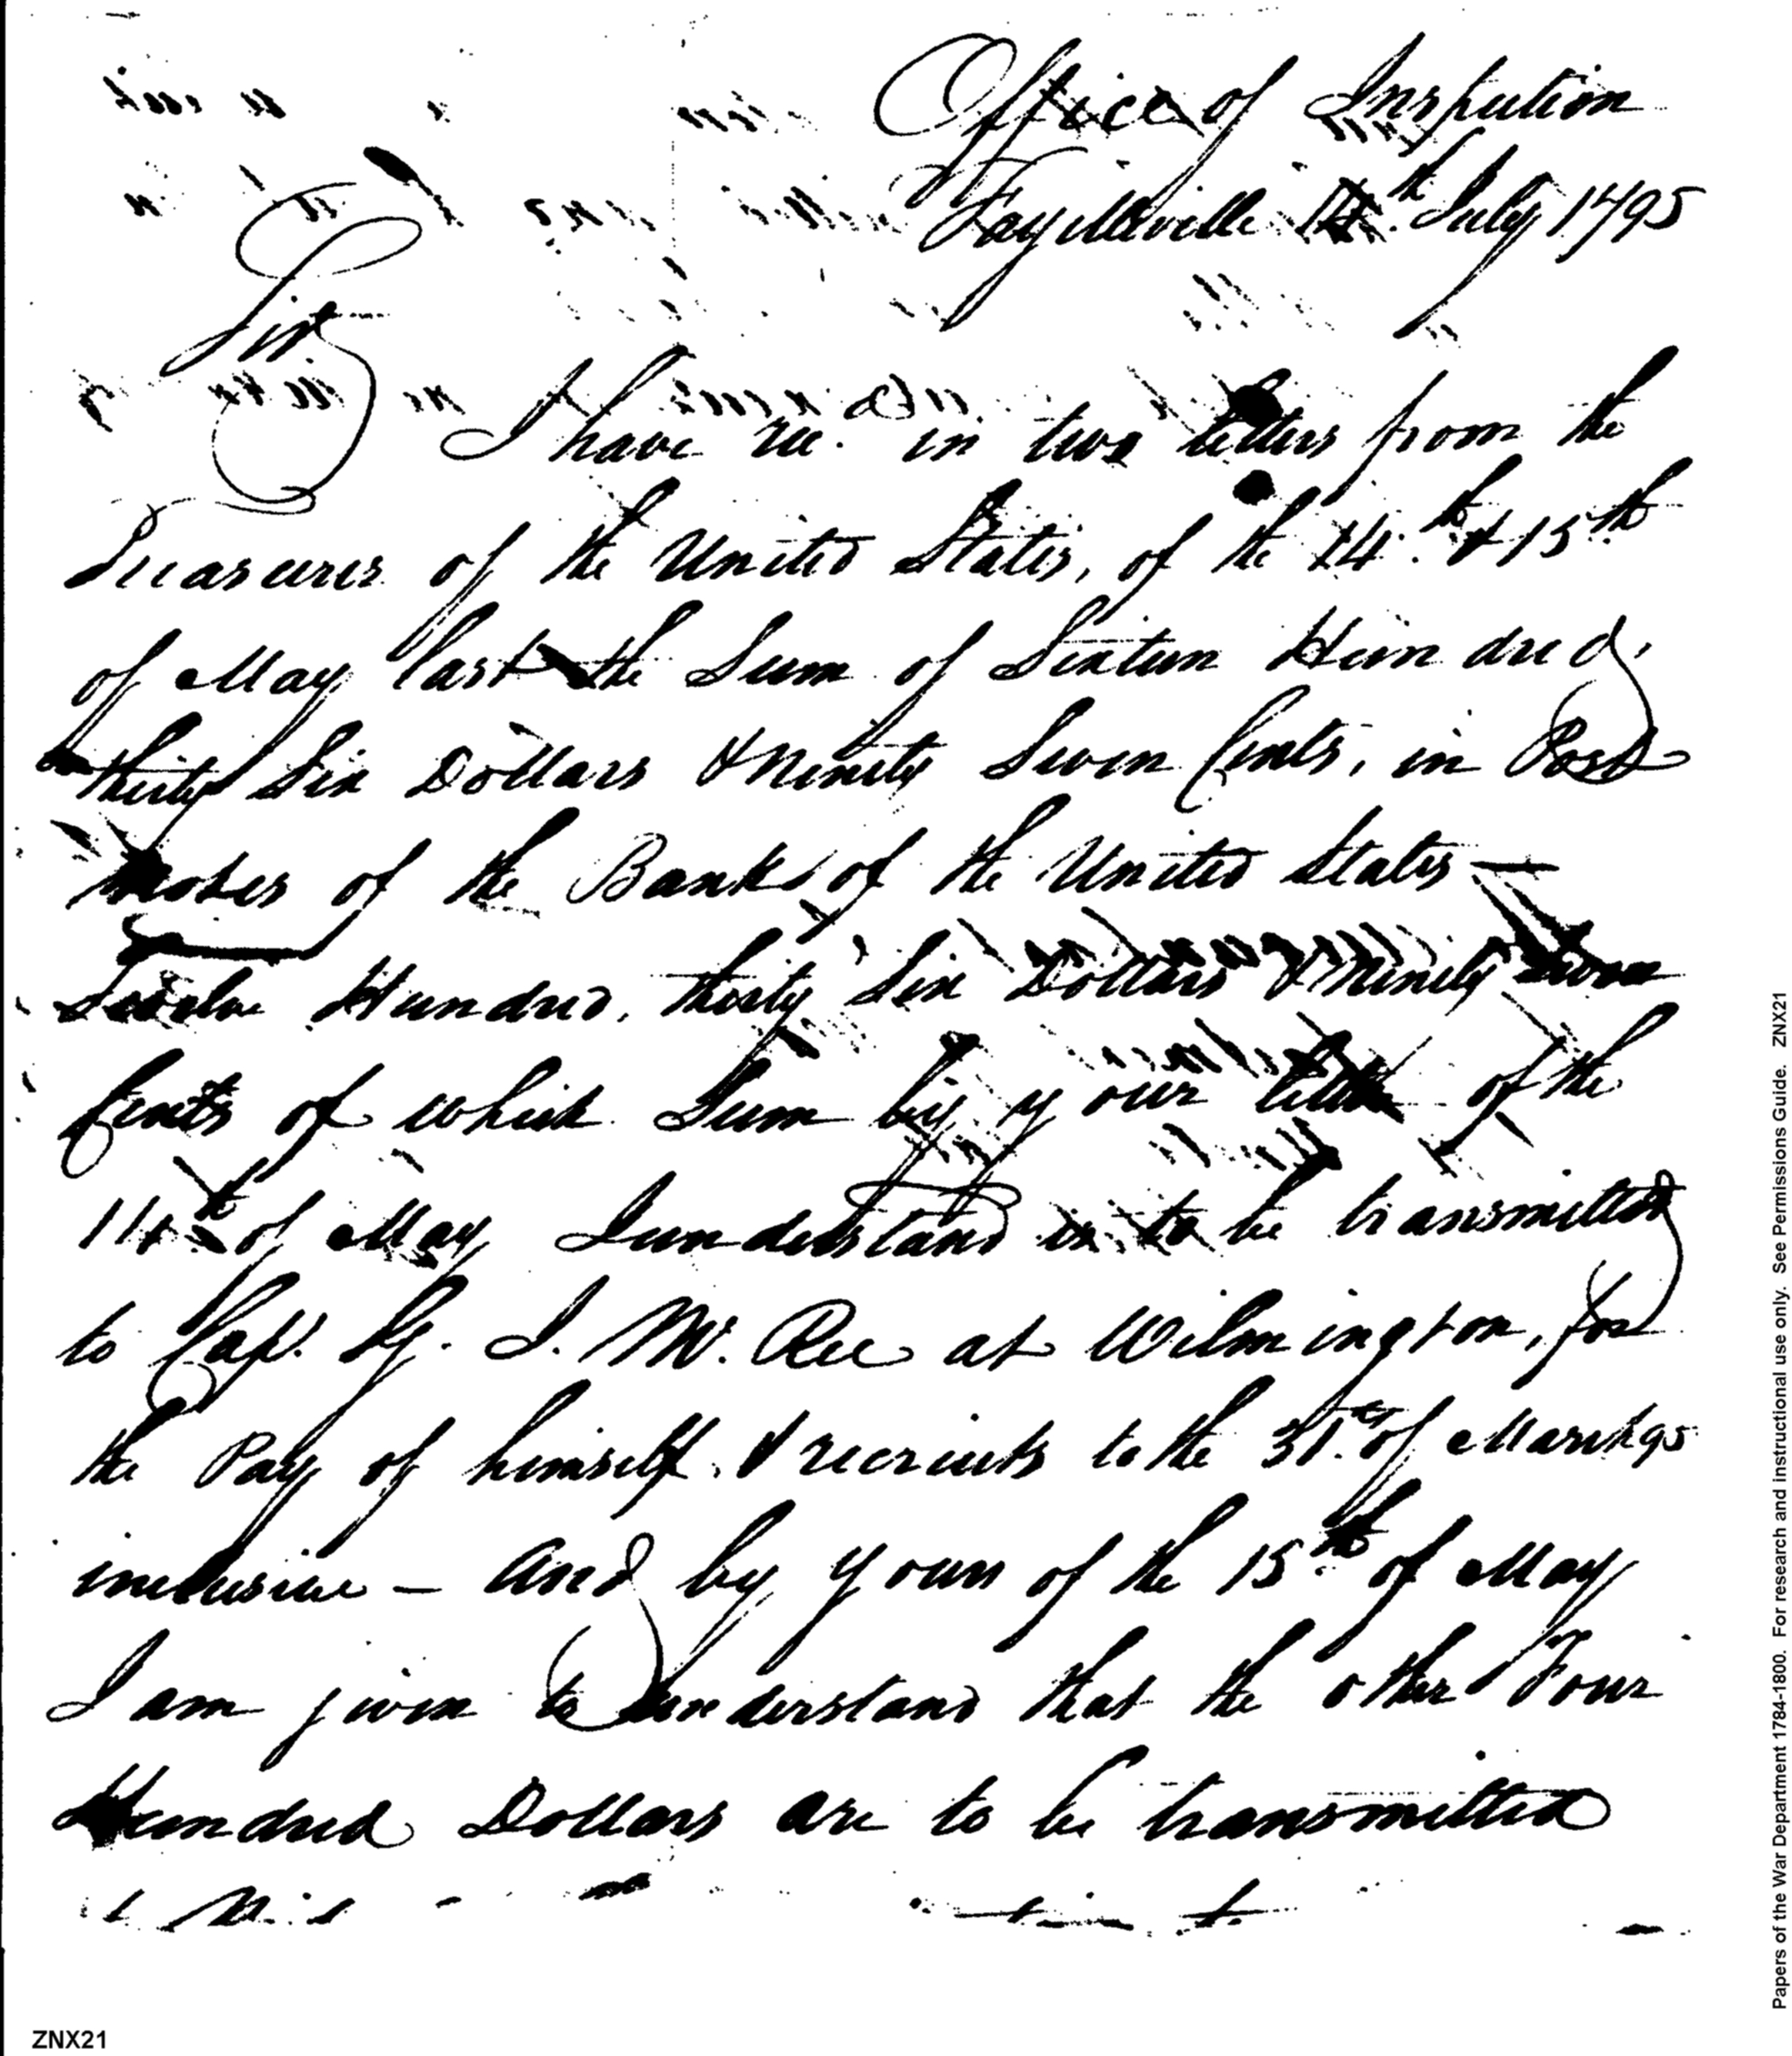 Office of Inspection
Fayetteville July 1795
Sir
I have rec. in two letters from the
Treasurer of the United States, of the 14th & 15th
of May last the Sum of Sixteen Hundred,
thirty Six Dollars & Ninety Seven Cents, in Post
notes of the Bank of the United States —
Twelve Hundred, thirty Six Dollars & Ninety Seven
Cents of which Sum by your letter of the
14th of May I understand is to be transmitted
to Cap. G. J. Mc. Ree at Wilmington, for
the Pay of himself, & recruits to the 31st of March 95
inclusive — And by yours of the 15th of May
I am given to understand that the other Four
Hundred Dollars are to be transmitted
ZNX21
Papers of the War Department 1784-1800. For research and instructional use only. See Permissions Guide. ZNX21